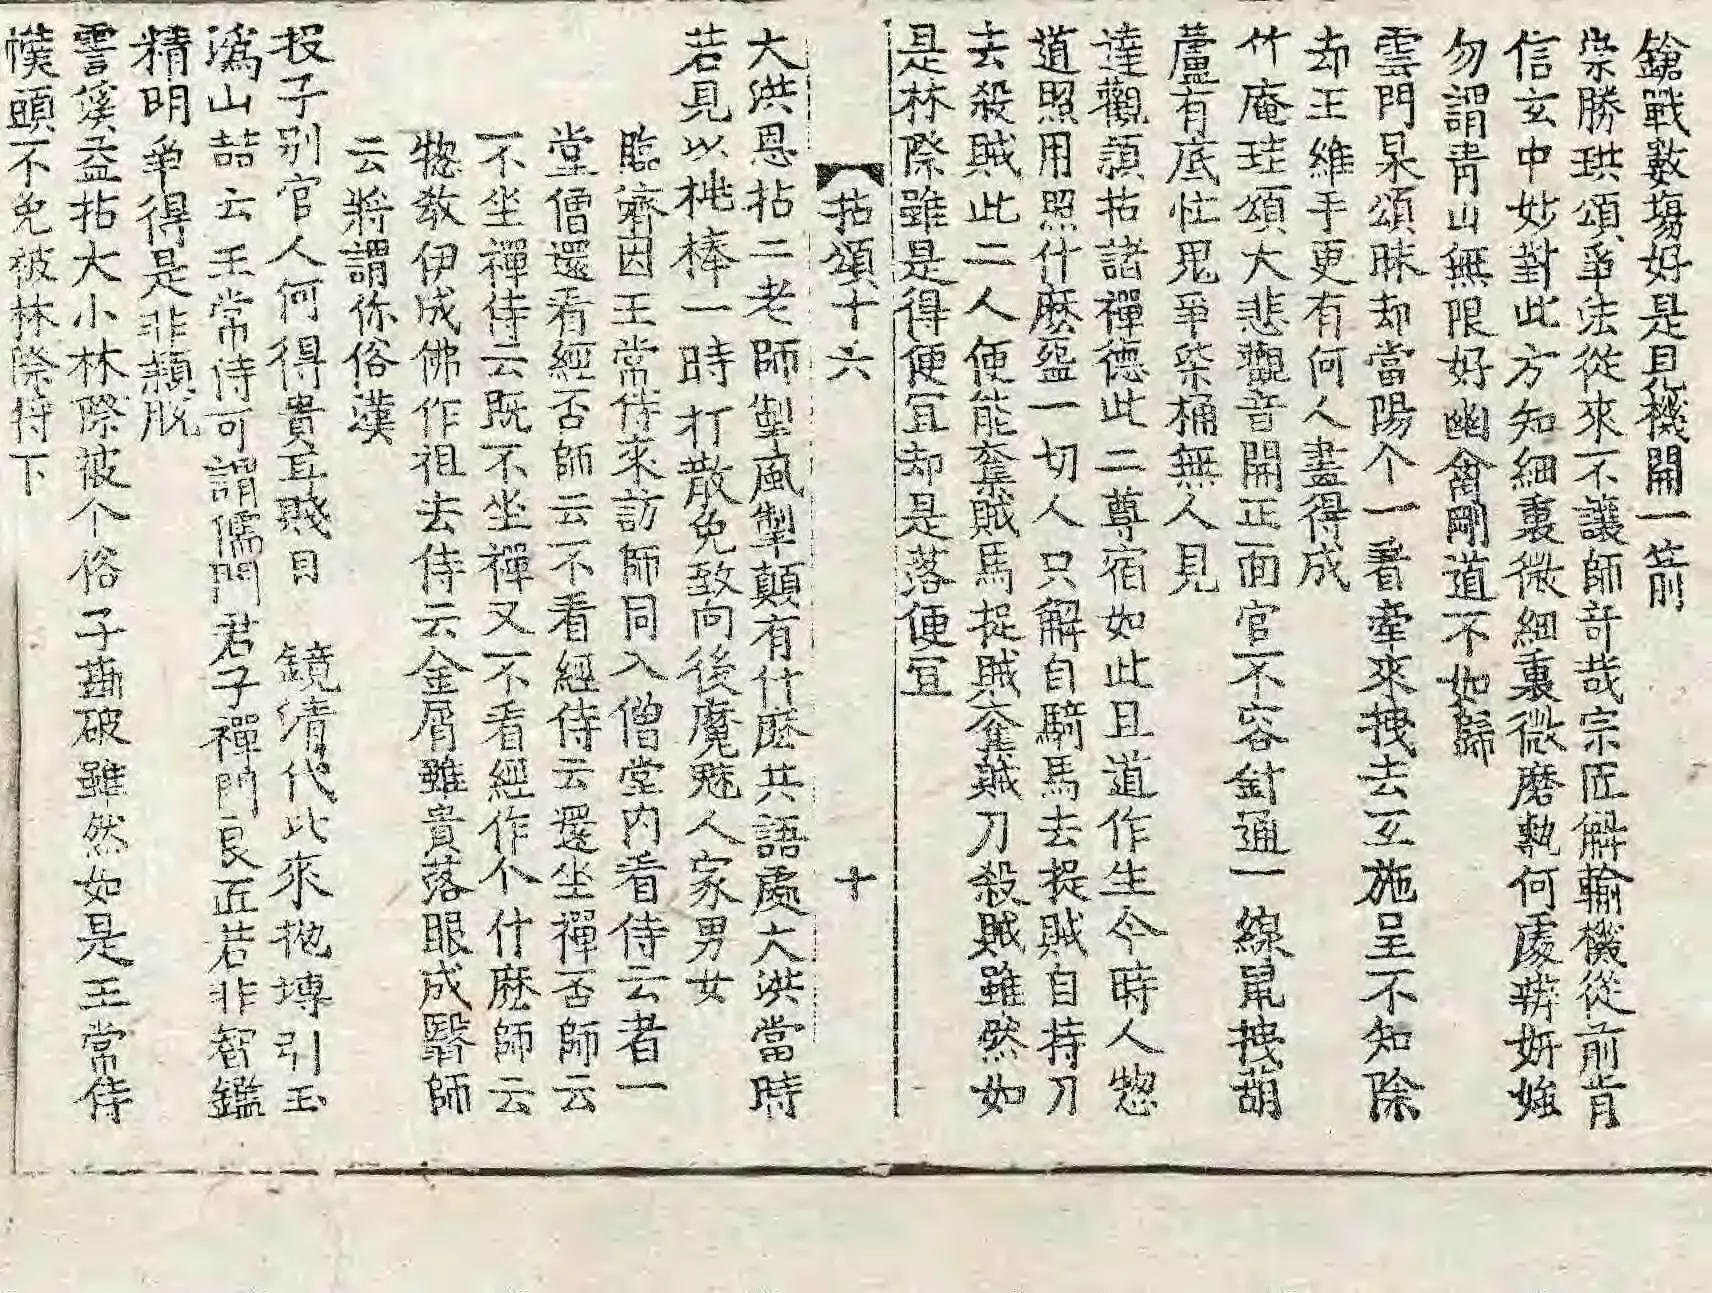 鎗戰數塲好是且機開一箭
崇勝珙頌爭法從來不讓師竒哉宗匠解輸機從前肯
信玄中妙對此方知細裏微細裏微磨勘何處辨妍媸
勿謂青山無限好幽禽剛道不如歸
雲門杲頌昧却當陽个一着牽來拽去互施呈不知除
却王維手更有何人盡得成
竹庵珪頌大悲觀音開正面官不容針通一線鼠拽葫
蘆有底忙鬼爭柒桶無人見
達觀頴拈諸禪德此二尊宿如此且道作生今時人惣
道照用照什麽盌一切人只解自騎馬去捉賊自持刀
去殺賊此二人便能奪賊馬捉賊奪賊刀殺賊雖然如
是林際雖是得便冝却是落便冝
拈頌十六 十
大洪恩拈二老師掣風掣顛有什麽共語處大洪當時
若見以柱棒一時打散免致向後魔魅人家男女
臨濟因王常侍來訪師同入僧堂内看侍云者一
堂僧還看經否師云不看經侍云還坐禪否師云
不坐禪侍云既不坐禪又不看經作个什麽師云
惣敎伊成佛作祖去侍云金屑雖貴落眼成翳師
云將謂你俗漢
投子别官人何得貴耳賤目 鏡清代比來抛塼引玉
潙山喆云王常侍可謂儒門君子禪門良匠若非智鑑
精明争得是非頴脫
霅溪益拈大小林際被个俗子勘破雖然如是王常侍
幞頭不免被林際拶下